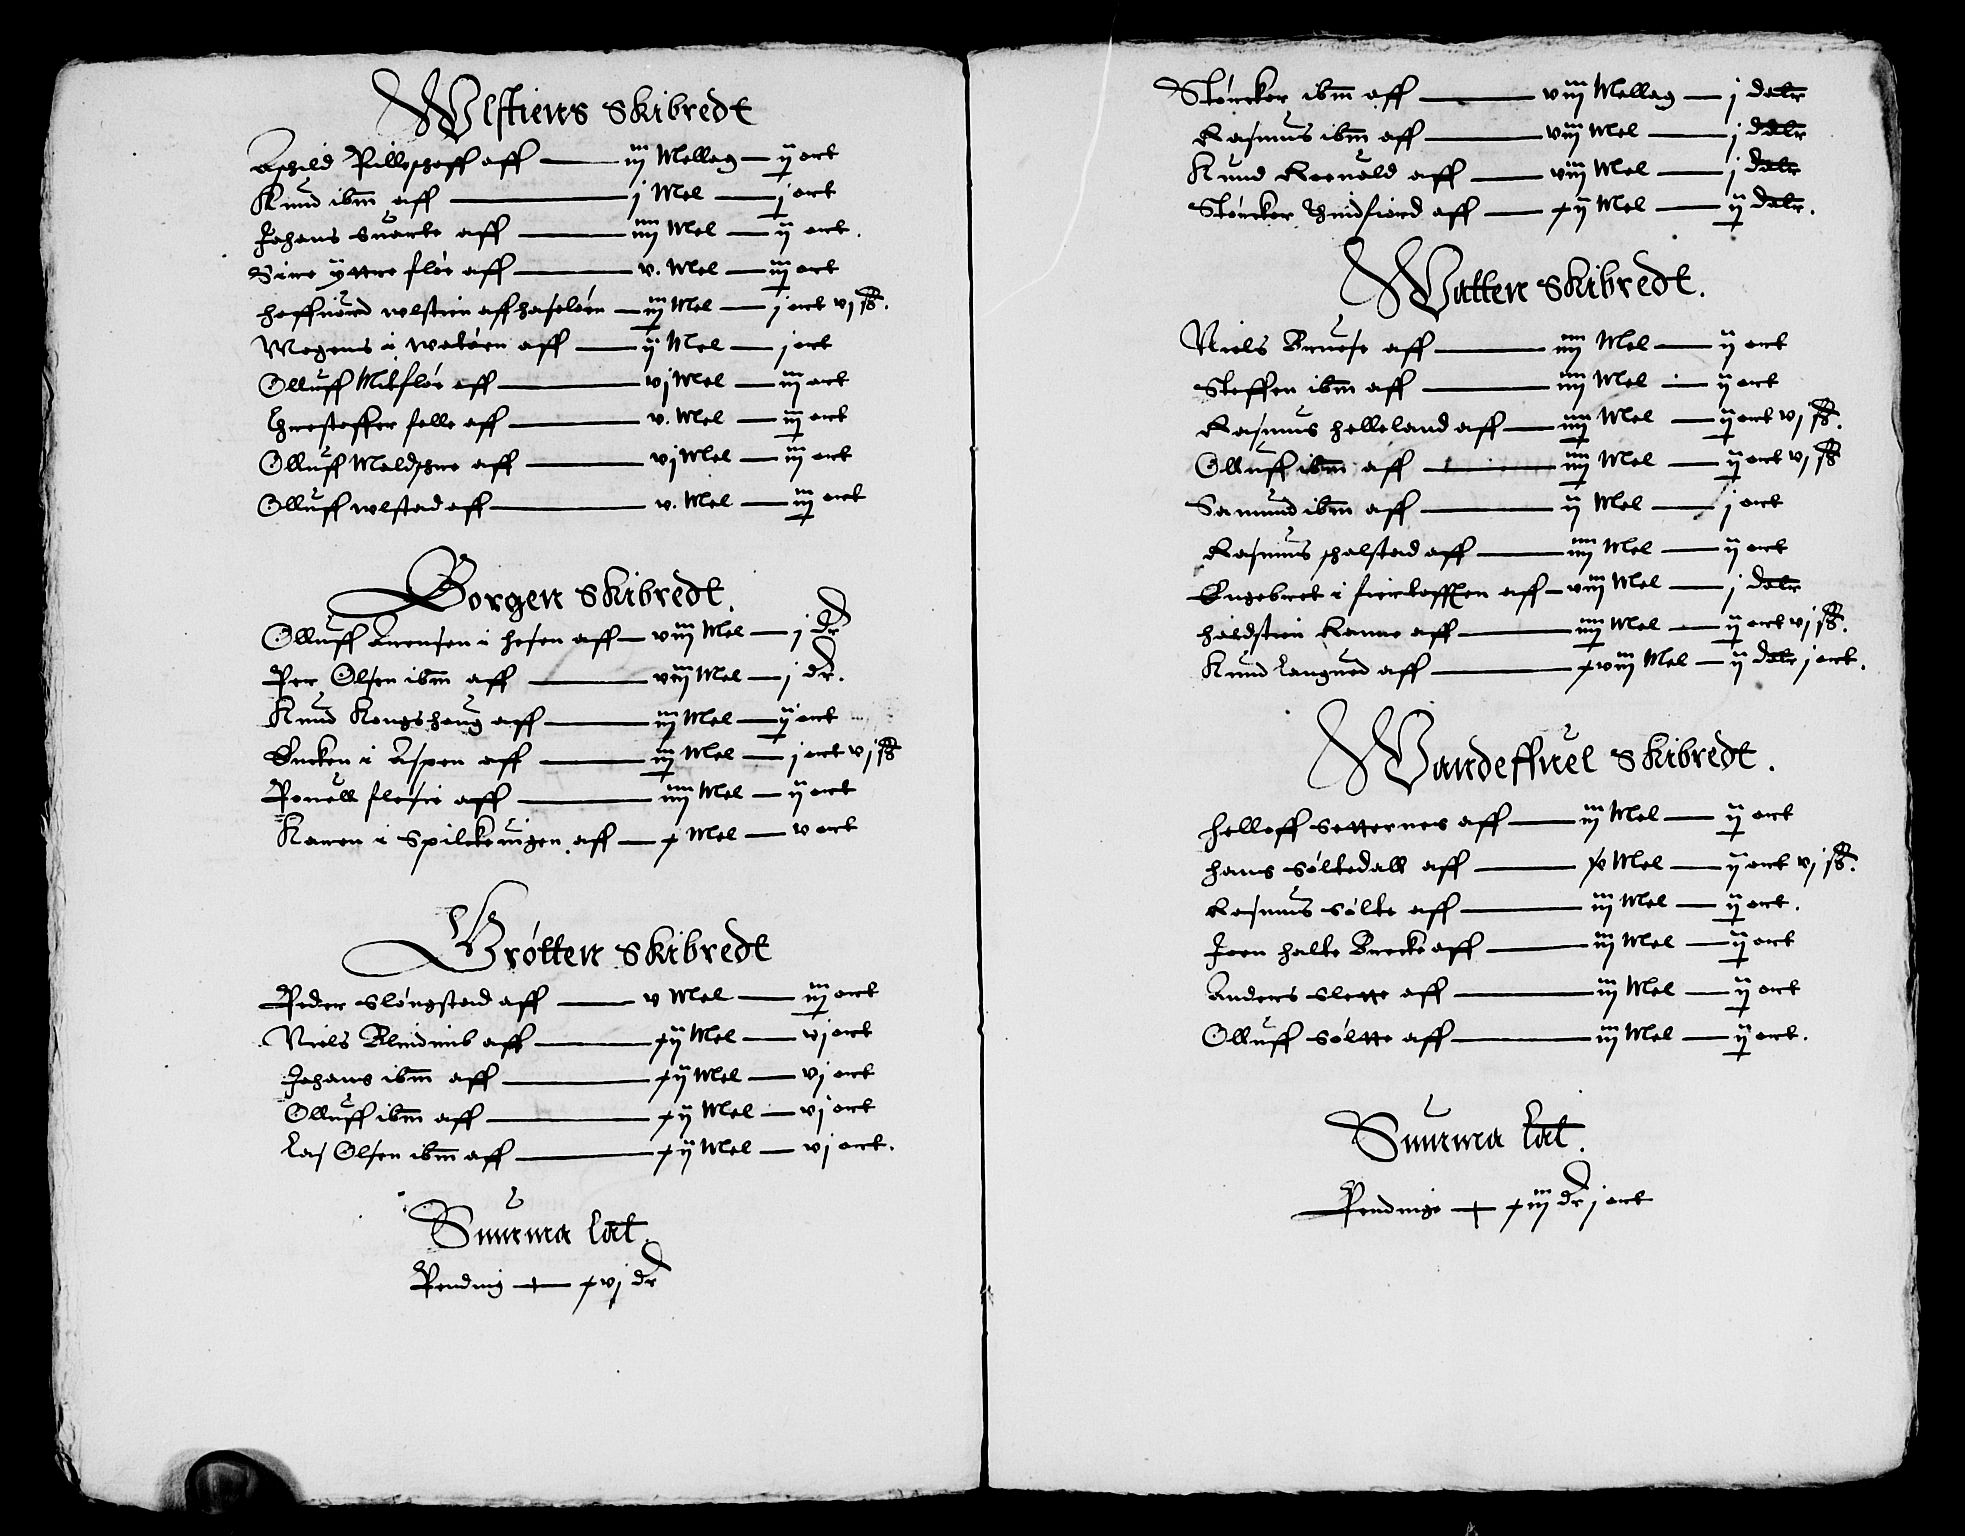 Wlstiens Skibredt
Eschild Pilleschaff aff — iij Mellag — ij ort
Knud ibm aff — j Mel — j ort
Johans Suarte aff — iiij Mel — ij ort.
Sire yttre fløe aff — v. Mel — iij ort
Haffuord wlstein aff haseløen — iij Mel — j ort vj sß.
Mogens i Watøen aff — ij Mel — j ort
Olluff Mitfløe aff — vj Mel — iij ort
Chrestoffer felle aff — v. Mel — iij ort
Olluff Meldschne aff — vj Mel — iij ort
Olluff wlstad aff — v. Mel — iij ort
Borgen Skibredt.
Olluff Arensen i hesen aff — viij Mel — j dr
Per Olsen ibm aff — viij Mel — j dr.
Knud Kongshaug aff — iij Mel — ij ort
Encken i Aspen aff — iij Mel — j ort vj sß
Pouell flesie aff — iiij Mel — ij ort
Karen i Spilckeuigen aff — x Mel — v ort
Brøtten Skibredt
Peder Sløngstad aff — v Mel — iij ort
Niels Blindnib aff — xij Mel — vj ort
Johans ibm aff — xij Mel — vj ort
Olluff ibm aff — xij Mel — vj ort
Las Olsen ibm aff — xij Mel — vj ort.
Summa lat.
Pending — xvj dr
Størcker ibm aff — viij Mellag — j dalr
Rasmus ibm aff — viij Mel — j dalr
Knud Roeuald aff — viij Mel — j dalr
Størcker Thindfiord aff — xij Mel — ij dalr.
Watten Skibredt.
Niels Bruose aff — iiij Mel — ij ort
Steffen ibm aff — iiij Mel — ij ort
Rasmus Helleland aff — iiij Mel — ij ort vj sß.
Olluff ibm aff — iiij Mel — ij ort vj sß
Samund ibm aff — ij Mel — j ort
Rasmus schalstad aff — iiij Mel — ij ort
Engebret i fiertofften aff — viij Mel — j dalr
Haldstein Ranne aff — iiij Mel — ij ort vj sß.
Knud Langued aff — xviij Mel — ij dalr j ort.
Wandeffuel Skibredt.
Helloff Setternes aff — iij Mel — ij ort
Hans Søltedall aff — v Mel — ij ort vj sß.
Rasmus Sølte aff — iij Mel — ij ort.
Joen halte Brecke aff — iij Mel — ij ort
Anders Slette aff — iij Mel — ij ort
Olluff Søltte aff — iij Mel — ij ort.
Summa lat.
Pendinge — xiij dr j ort